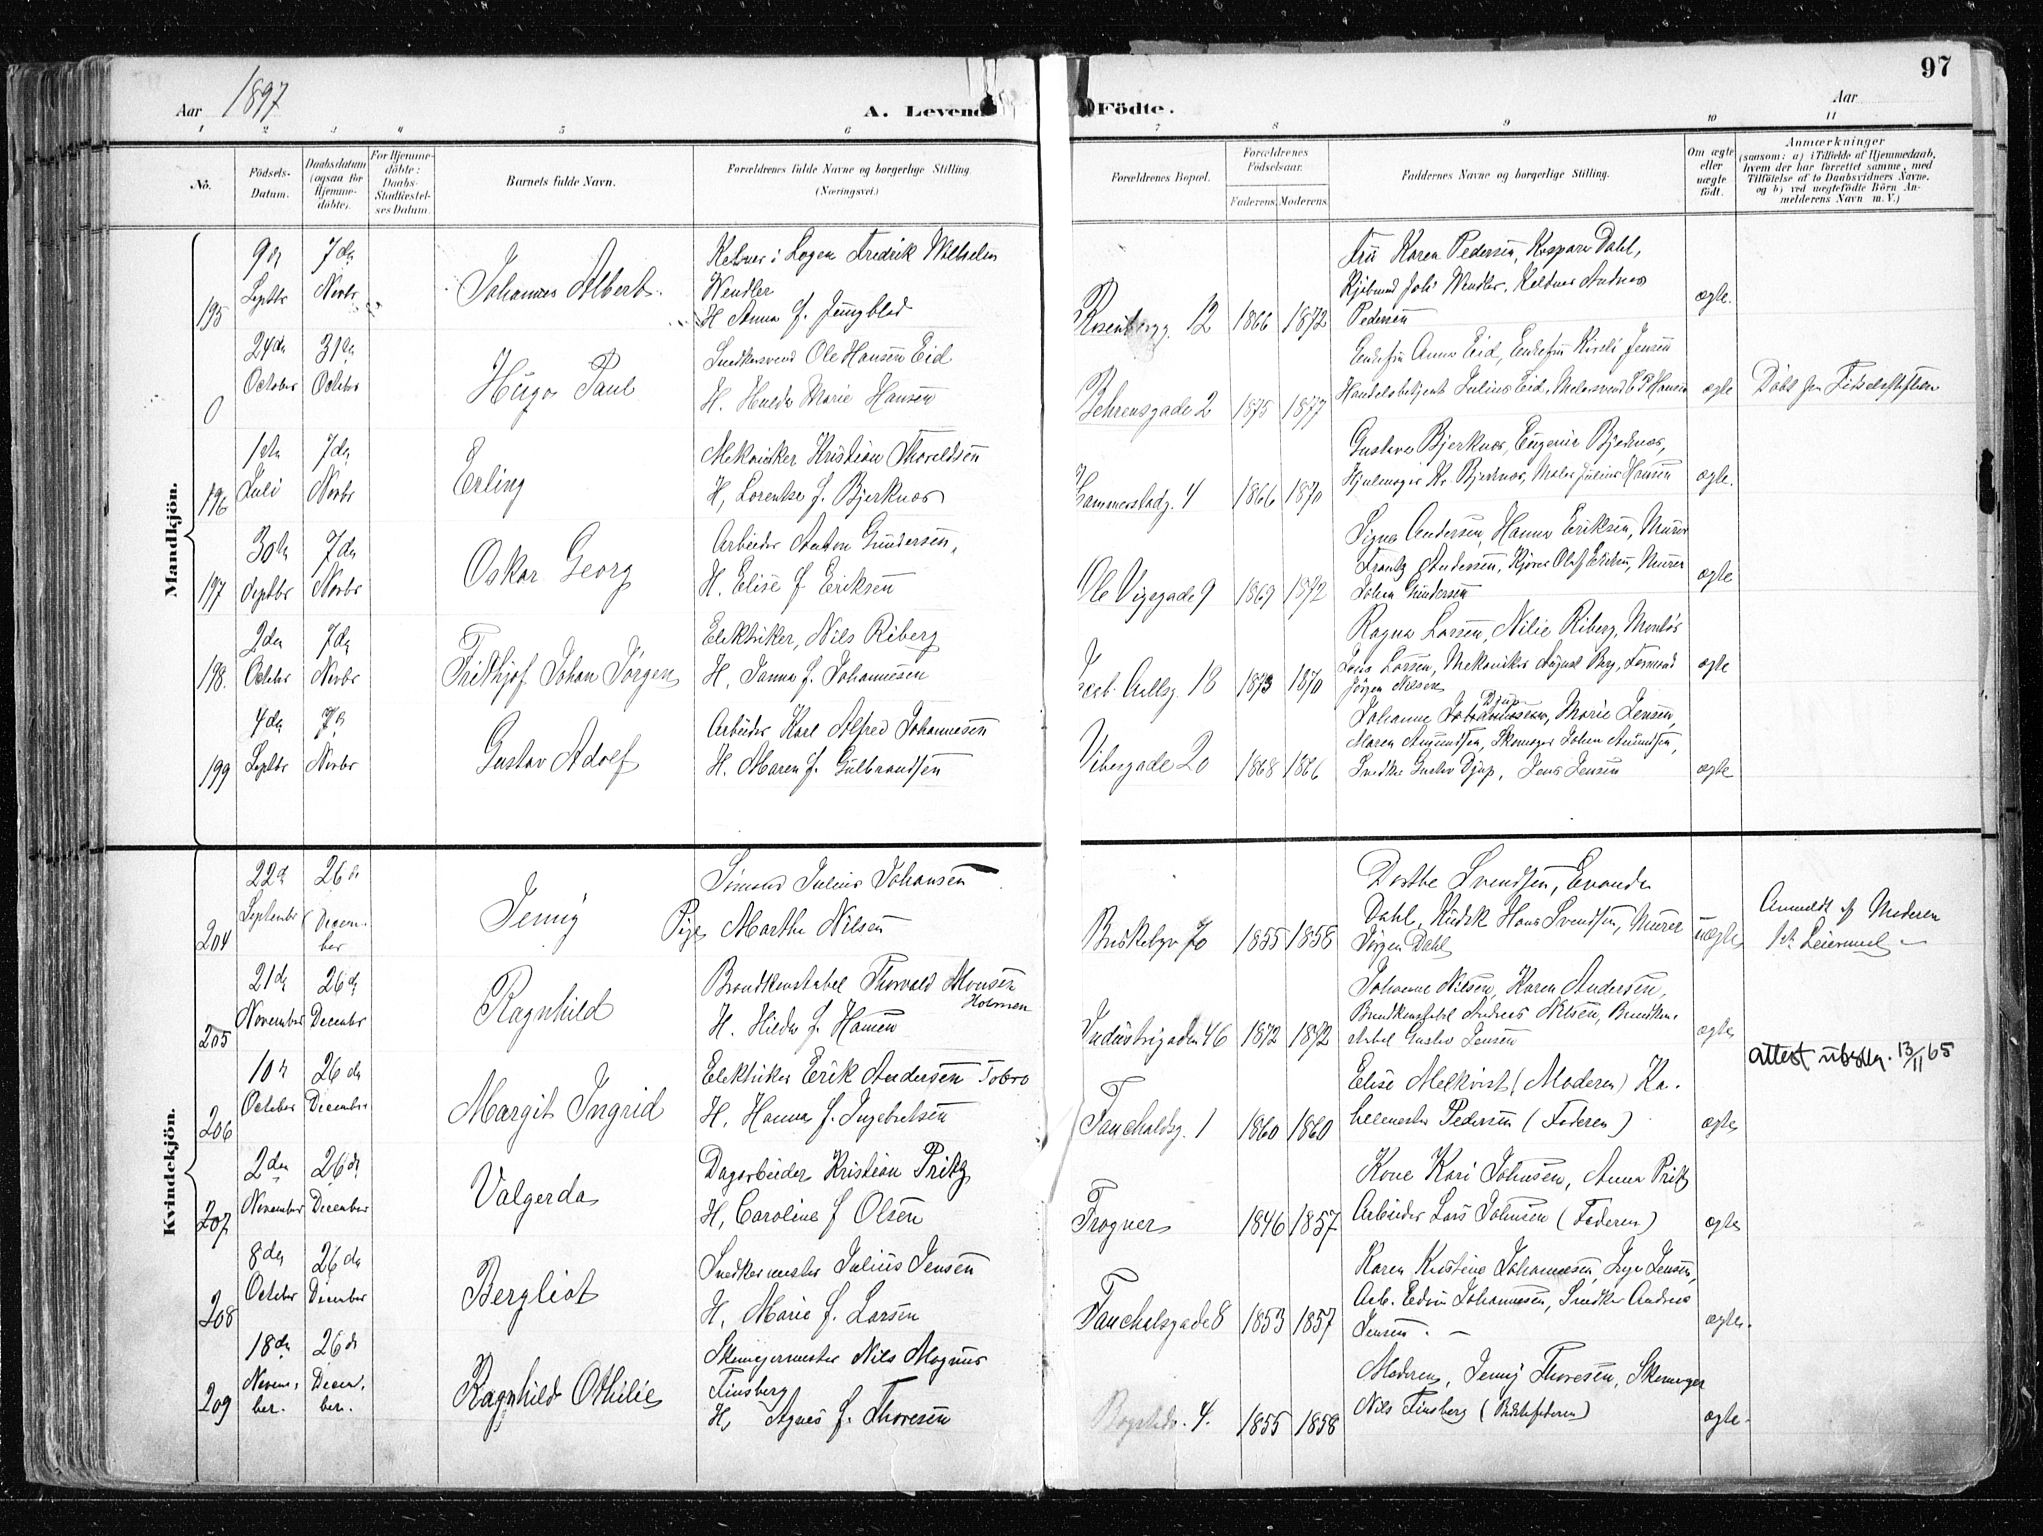 97
Aar 1897
A. Levende Fødte.
Aar
1 2 3 4 5 6 7 8 9 10 11
No.
Födsels-Datum.
Daabsdatum (ogsaa for Hjemmedöbte).
For Hjemmedöbte: Daabs-Stadfæstelses Datum.
Barnets fulde Navn.
Forældrenes fulde Navne og borgerlige Stilling. (Næringsvei.)
Forældrenes Bopæl.
Forældrenes Födselsaar. Faderens. Moderens.
Faddernes Navne og borgerlige Stilling.
Om ægte eller uægte født.
Anmærkninger (saasom: a) i Tilfælde af Hjemmedaab, hvem der har forrettet samme, med Tilföielse af to Daabsvidners Navne, og b) ved uægtefödte Börn Anmelderens Navn m. V.)
Mandkjön.
195
9de Septbr
7de Novbr
Johannes Albert
Kelner i Logen Fredrik Wilhelm
Wendler
H Anna f. Jungblad
Rosenborgg. 12
1866 1872
Fru Karen Pedersen, Kaspara Dahl,
Wendler, Keldner Andreas
Pedersen
ægte.
0
24de October
31te Octbr
Hugo Paul
Snedkersvend Ole Hansen Eid
H. Hulda Marie Hansen
Behrensgade 2
1875 1877
Enkefru Anna Eid, Enkefru Kirsti Jensen
Handelsbetjent Julius Eid, Malersvend Hansen
ægte
Döbt paa Fødselsstiftelsen
196
1ste Juli
7de Novbr
Erling
Mekaniker Kristian Thoreldsen
H, Lorentse f. Bjerknæs
Hammerstadg. 4
1866 1870
Gustava Bjerknæs, Eugenie Bjerknæs,
Hjulmager Kr. Bjerknæs, Maler Julius Hansen
ægte.
197
30te Septbr
7de Novbr
Oskar Georg
Arbeider Anton Gundersen,
H. Elise f Eriksen
Ole Vigsgade 9
1869 1872
Signe Andersen, Hanna Eriksen, Murer
Frantz Andersen, Kjører Olaf Eriksen, Murer
Johan Gundersen
ægte
198.
2den October
7de Novbr
Frithjof Johan Jörgen
Elektriker, Nils Riberg
H, Janna f. Johannesen
Jacob Aallsg. 18
1873 1870
Ragna Larsen, Nilie Riberg, Montör
Jens Larsen, Mekaniker August Berg, Formand
Jörgen Nilsen
ægte
199
4de Septbr
7de Novbr
Gustav Adolf
Arbeider Karl Alfred Johannesen
H. Maren f. Gulbrandsen
Vibesgade 20
1868 1866
Djup
Johanne Johannesen, Marie Jensen,
Maren Amundsen, Skomager Johan Amundsen,
Snedker Gustav Djup, Jens Jensen
ægte
Kvindekjön.
204
22de September
26de December
Jenny
Sömand Julius Johansen
Pige Marthe Nilsen
Briskebyv 70
1855 1858
Dorthe Svendsen, Evanda
Dahl, Kudsk Hans Svendsen, Murer
Jörgen Dahl
uægte
Anmeldt af Moderen
1ste Leiermaal
205
21de November
26de December
Ragnhild
Brandkonstabel Thorvald Monsen
Holman
H. Hilda f. Hansen
Industrigaden 46
1872 1872
Johanne Nilsen, Karen Andersen,
Brandkonstabel Andreas Nilsen, Brandkon-
stabel Gustav Jensen
ægte
206
10de October
26de December
Margit Ingrid
Elektriker Erik Andersen Tobro
H. Hanna f. Ingebretsen
Fauchaldsg. 1
1860 1860
Elise Melkvist (Moderen) Ka-
Pedersen (Faderen)
ægte
attest utstedt. 13/11 65
207
2den November
26de December
Valgerda
Dagarbeider Kristian Pritz
H, Caroline f Olsen
Frogner
1846 1857
Kone Kari Johnsen, Anna Pritz
Arbeider Lars Johnsen (Faderen)
ægte
208
8de October
26de December
Bergliot
Snedkermester Julius Jensen
H, Marie f. Larsen
Fauchalsgade 8
1853 1857
Karen Kristine Johannesen, Inga Jensen,
Arb. Edvin Johannesen, Snedker Andreas
Jensen. —
ægte.
209
18de November.
26de December.
Ragnhild Othilie
Skomagermester Nils Magnus
Finsberg
H, Agnes f. Thoresen
Bogstadv. 4.
1855 1858
Moderen, Jenny Thoresen, Skomager
Nils Finsberg (Barnefaderen)
ægte.